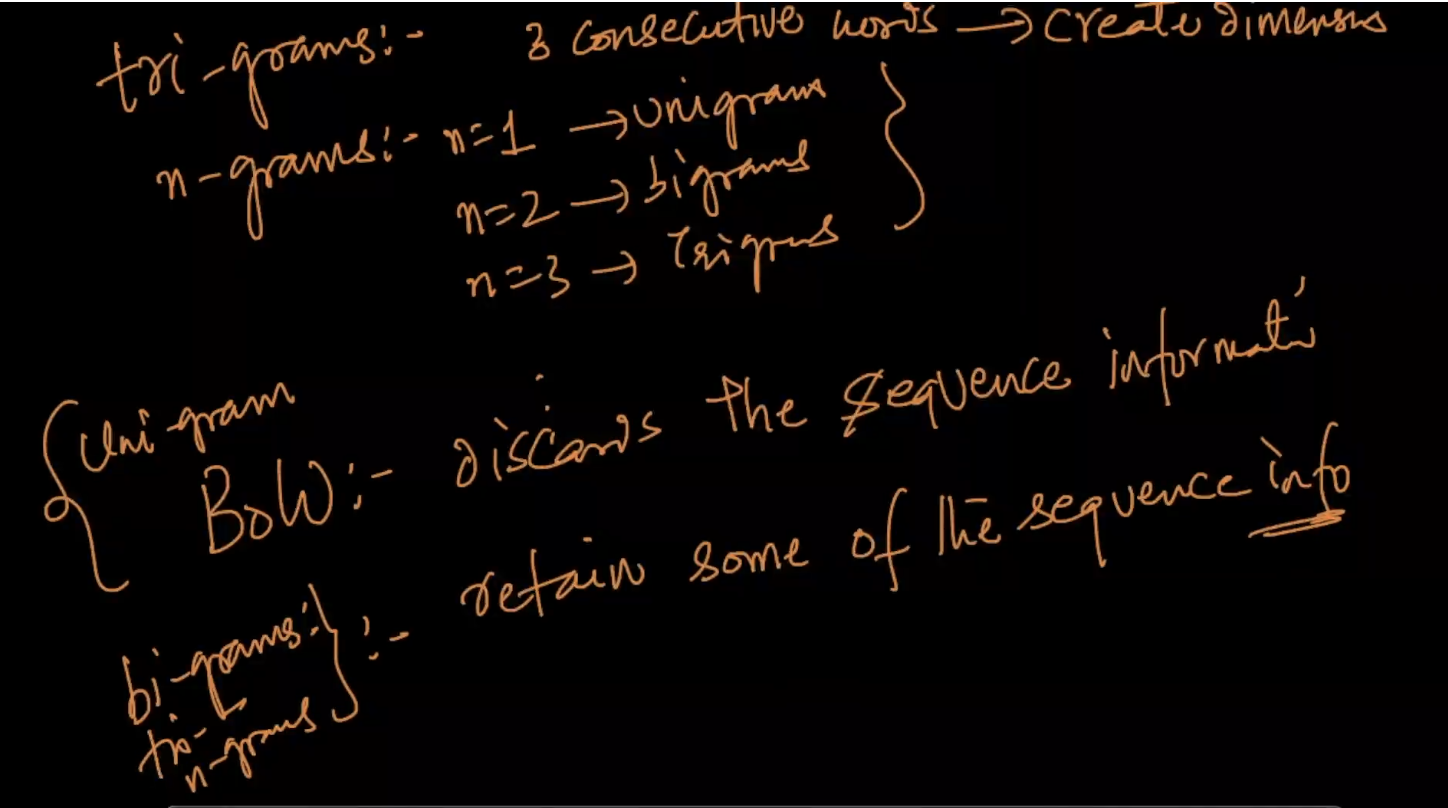 tri-grams:- 3 consecutive words → create dimensns
n-grams:- n=1 → unigram
n=2 → bigrams
n=3 → Trigrms
Uni-gram
BoW:- discards the sequence informati
bi-grams:
:- retain some of the sequence info
tri-
n-grams